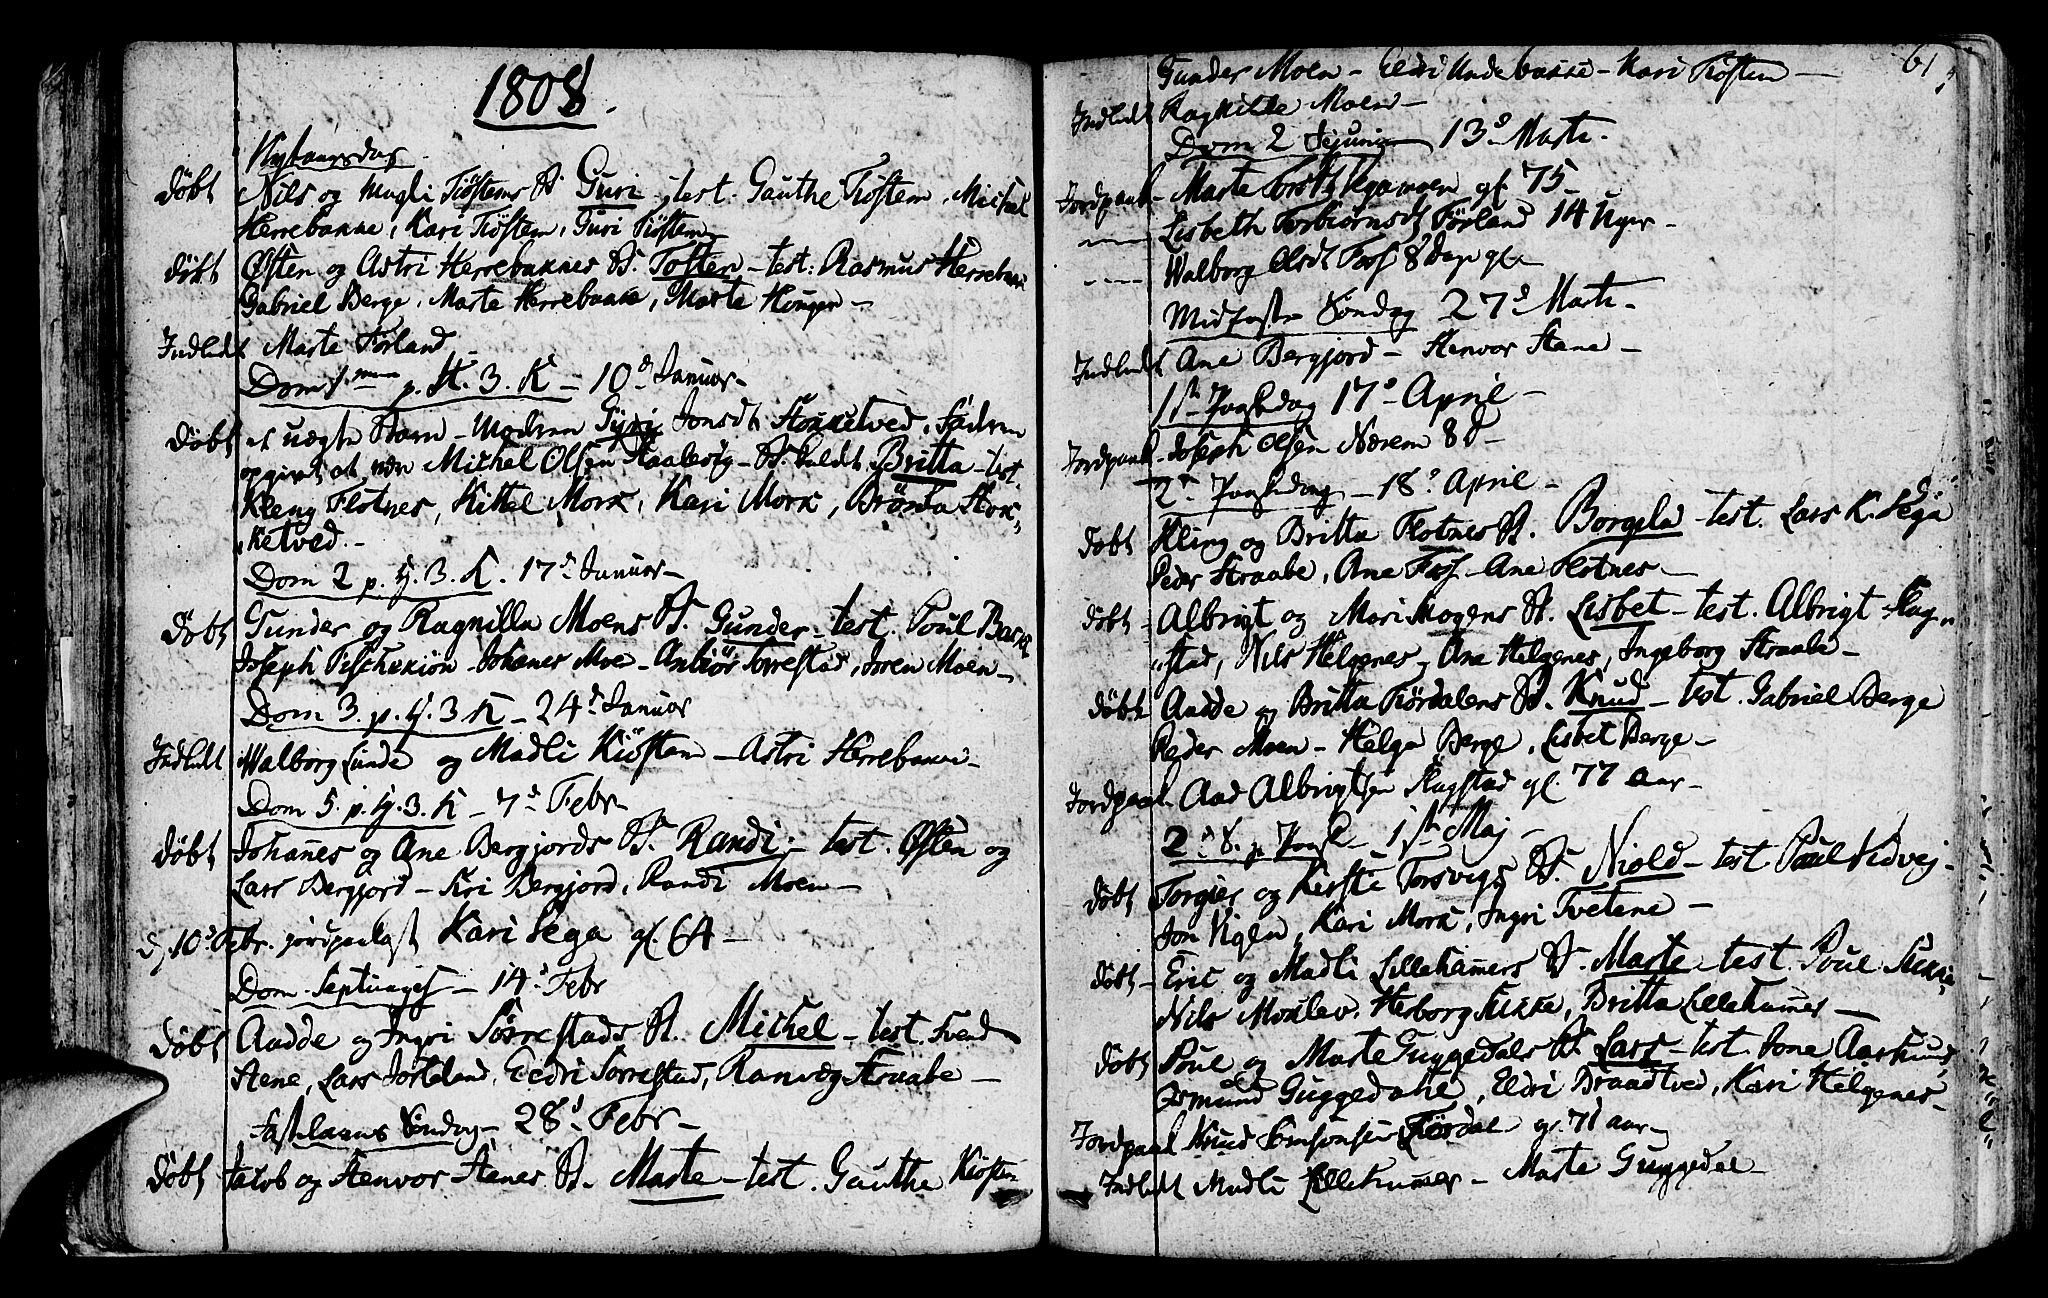 1808
Nytaarsdag
Døbt Nils og Magli Tiøstems B. Guri, test. Gauthe Tiøstem, Michel
Herrebakke, Kari Tiøstem, Guri Tiøstem
Døbt Østen og Astri Herrebakkes B. Tosten - test: Rasmus Herrebakke
Gabriel Berge, Marte Herrebakke, Marte Hougen -
Indledt Marte Förland
Dom 1. p. H. 3. K - 10d Januar -
Døbt et uægte Barn - Modren Gyri Jonsdt Stokketved, Fadren
opgivet at være Michel Olsen Raabesøg - B. kaldt Britta - test.
Kleng Flotnes, Kittel Mork, Kari Mork, Brönla Stok-
ketved. -
Dom 2 p. H. 3. K. 17d Januar -
Døbt Gunder og Ragnilla Moens B. Gunder - test. Poul Bakke
Joseph Joh. Moe - Sørrestad, Joren Moen -
Dom 3. p. H. 3 K - 24d Januar
Indledt Walborg Lunde og Madli Kiöstem - Astri Herrebakke -
Dom 5. p. H. 3. K - 7d Febr -
Døbt Johannes og Ane Bergjords B. Randi - test. Østen og
Lars Bergjord - Siri Bergjord, Randi Moen -
d. 10d Febr. jordpaakast Kari Sega gl. 64 -
Dom. Septuages - 14d Febr
Døbt Aadde og Ingri Sørrestads B. Michel - test. Svend
Stene, Lars Jorleland, Eldri Sørrestad, Ranvæg Straabe -
Fastelavns Søndag - 28d Febr -
Døbt Jacob og Stenvor Stenes B. Marte - test. Gauthe Kiøstem
61
Gunder Moen - Eldri Undebakke - Kari Tiøstem -
Indledt Ragnilde Moen -
Dom 2 Jejuni 13d Marts.
Jordpaak. Marte Torsd Vegamoen gl. 75 -
- Lisbeth Torbiørnsdt Førland 14 Uger -
- Walborg Olsdt Foss 8 Dage gl -
Midfaste Søndag 27d Marts -
Indledt Ane Bergjord - Stenvor Stene -
1st Paaskedag 17d April -
Jordpaak - Joseph Olsen Nærem 8 d -
2d Paaskedag - 18d April -
Døbt Kling og Britta Flotnes B. Borgela - test. Lars K. Sega
Peder Straabe, Ane Foss - Ane Flotnes -
Døbt - Albrigt og Mari Mogens B. Lisbet - test. Albrigt Slag-
stad, Nils Helgenes, Ane Helgenes, Ingeborg Straabe -
Døbt Aadde og Britta Fiördalens B. Knud - test. Gabriel Berge
Peder Moen - Helga Berge, Lisbet Berge -
Jordpaak. Aad Albrigtsen Slagstad gl. 77 aar -
2d S. p. Paask - 1st Maj -
Døbt Torgier og Kirsti Torsvigs B. Niold - test Poul Vedvej -
Jon Vigen, Kari Mork, Ingri Tvetene -
Døbt - Eric og Madli Lillehamers B. Marte - test. Poul Sukke,
Nils Moklev, Herborg Sukke, Britta Lillehamer -
Døbt Poul og Marte Guggedals B. Lars - test. Jone Aarhund,
Osmund Guggedahl, Eldri Braadtved, Kari Helgenes -
Jordpaak Knud Simonsen Fiørdal gl. 71 aar -
Indledt Madli Lillehamer - Marte Guggedal -